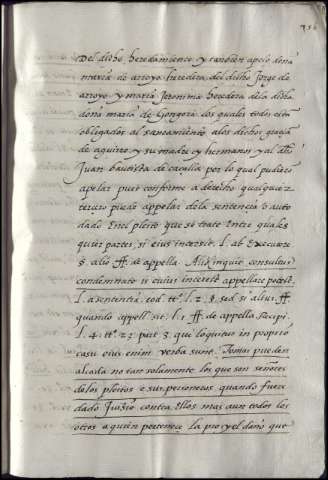 Del dicho heredamiento y tanbien apelo doña
maria de arroyo heredera del dicho Jorge de
arroyo y maria Jeronima heredera dela dicha
doña maria de Gongora los quales todos estan
obligados al saneamiento alos dichos garcia
de aguirre y su madre y hermanos y al dho
Juan bautista de por lo qual pudieron
apelar pues conforme a derecho qualquier
tercero puede appelar dela sentencia o auto
dado en el pleito que se trate entre quales
quier partes, si eius intersit. l. ab Executore
§. alio ff. de appella. Alio inquit consultus
condemnato is cuius interest appellare potest
l. a sententia. eod. tt.º l. 2. §. sed si alius. ff.
quando appell. sit. l. 1 ff. de appella. Recipi.
l. 4. tt.º 23 part. 3. qui loquitur in proprio
casu eius enim verba sunt. Tomar pueden
alcada no tan solamente los que son señores
delos pleitos o sus personeros quando fuere
dado Juizio contra Ellos mas aun todos los
otros a quien pertenece la pro y el daño que